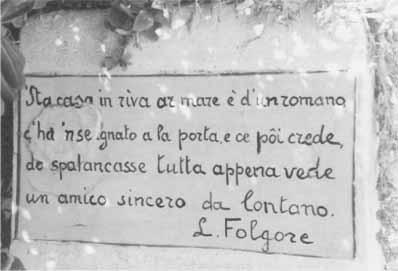 'Sta casa in riva ar mare è d'un romano
c'ha 'nsegnato a la porta, e ce pôi crede,
de spalancasse tutta appena vede
un amico sincero da lontano.
L. Folgore